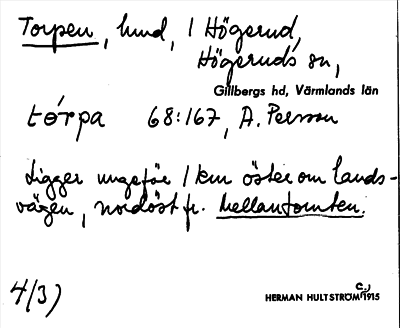 Torpen, lund, 1 Högerud,
Högeruds sn,
Gillbergs hd, Värmlands län
tórpa 68:167, A. Persson
Ligger ungefär 1 km öster om lands-
vägen, nordöst fr. Mellantomten.
4/3)
HERMAN HULTSTRÖM C., 1915